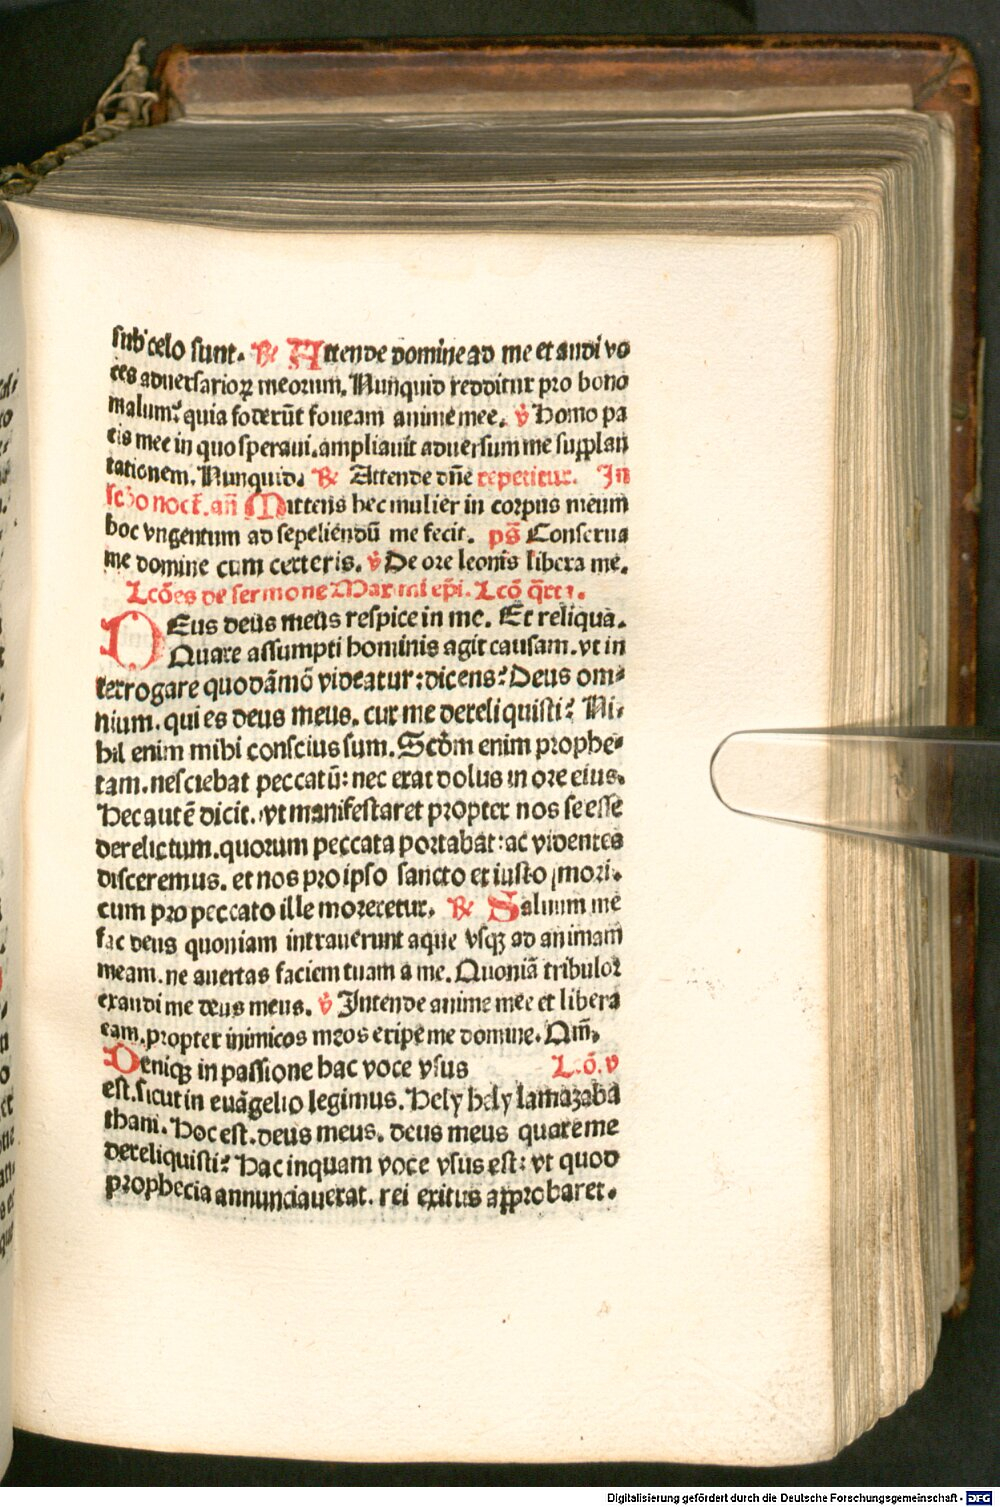 sub celo sunt. ℟ Attende domine ad me et audi vo
ces aduersarioꝝ meorum. Nunquid redditur pro bono
malum: quia foderūt foueam anime mee. ℣ Homo pa
cis mee in quo speraui. ampliauit aduersum me supplan
tationem. Nunquid. ℟ Attende dn̄e repetitur. In
scḋo noct̄. an̄ Mittens hec mulier in corpus meum
hoc vngentum ad sepeliendū me fecit. ps̄ Conserua
me domine cum ceteris. ℣ De ore leonis libera me.
Lcōes de sermone Maximi ep̄i. Lcō q̄rta.
DEus deus meus respice in me. Et reliqua.
Quare assumpti hominis agit causam. vt in
terrogare quodāmō videatur: dicens: Deus om⸗
nium. qui es deus meus. cur me dereliquisti? Ni⸗
hil enim mihi conscius sum. Scḋm enim prophe⸗
tam. nesciebat peccatū: nec erat dolus in ore eius.
Hec autē dicit. vt manifestaret propter nos se esse
derelictum. quorum peccata portabat: ac videntes
disceremus. et nos pro ipso sancto et iusto mori.
cum pro peccato ille moreretur. ℟ Saluum me
fac deus quoniam intrauerunt aque vsqꝫ ad animam
meam. ne auertas faciem tuam a me. Quoniā tribulor
exaudi me deus meus. ℣ Intende anime mee et libera
eam. propter inimicos meos eripe me domine. Qm̄.
Deniqꝫ in passione hac voce vsus Lcō. v
est. sicut in euāgelio legimus. Hely hely lamazaba
thani. Hoc est. deus meus. deus meus quare me
dereliquisti? Hac inquam voce vsus est: vt quod
prophecia annunciauerat. rei exitus approbaret.
Digitalisierung gefördert durch die Deutsche Forschungsgemeinschaft - DFG